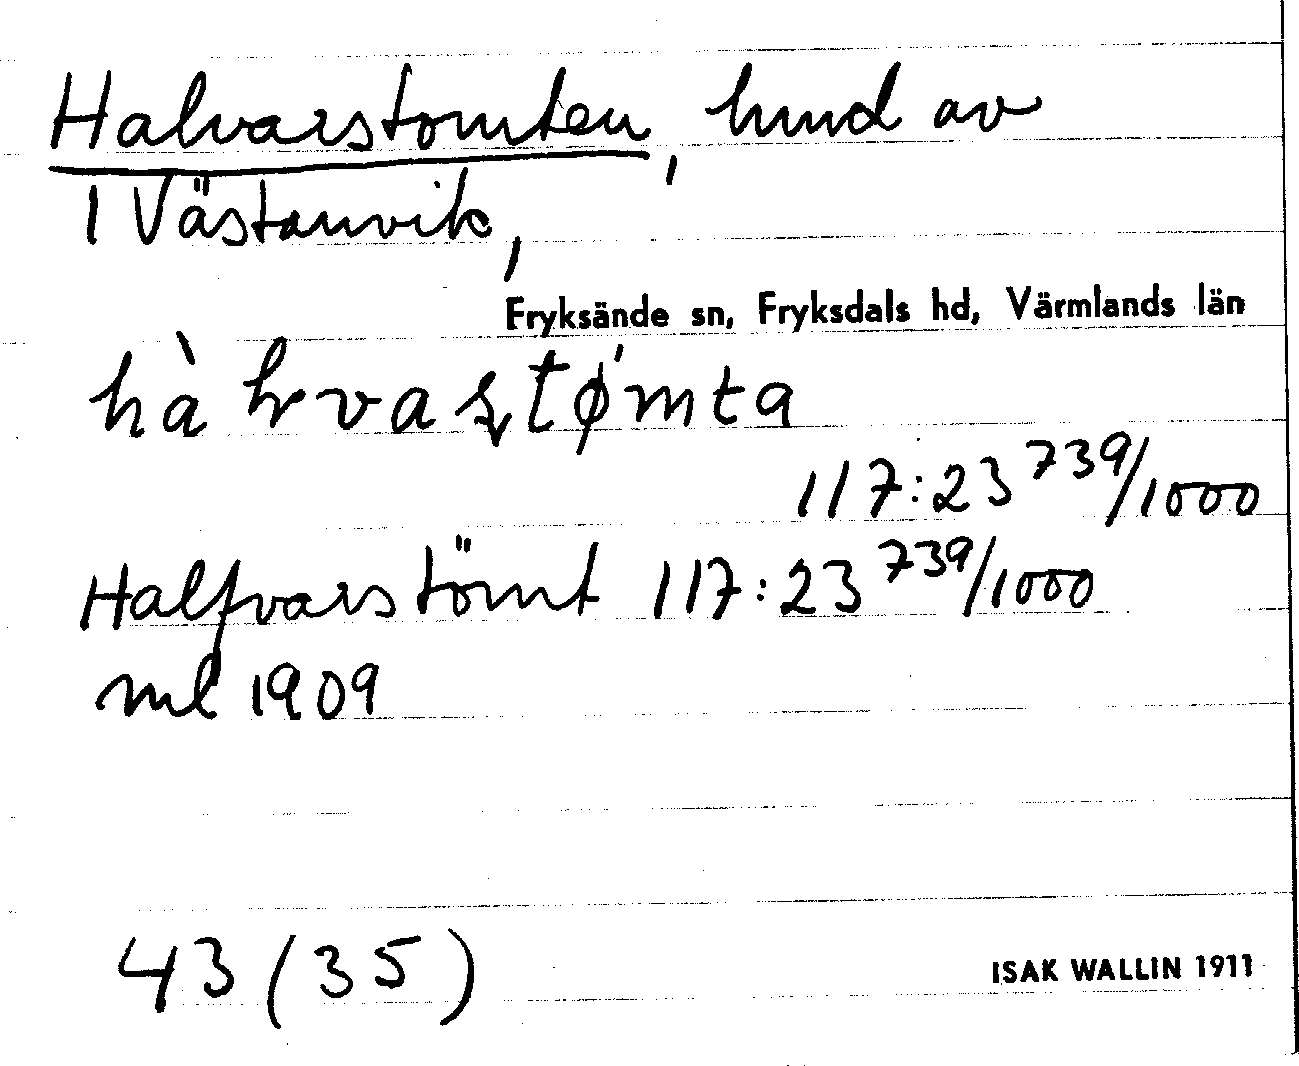 Halvarstomten, hmd av
1 Västanvik,
Fryksände sn, Fryksdals hd, Värmlands län
117:23 739/1000
Halfvarstömt 117:23 739/1000
ml 1909
43 (35)
ISAK WALLIN 1911